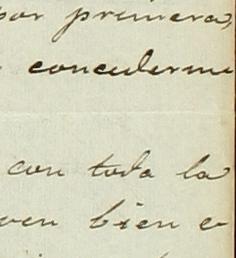 por primera,
concederme
con toda la
ven bien e